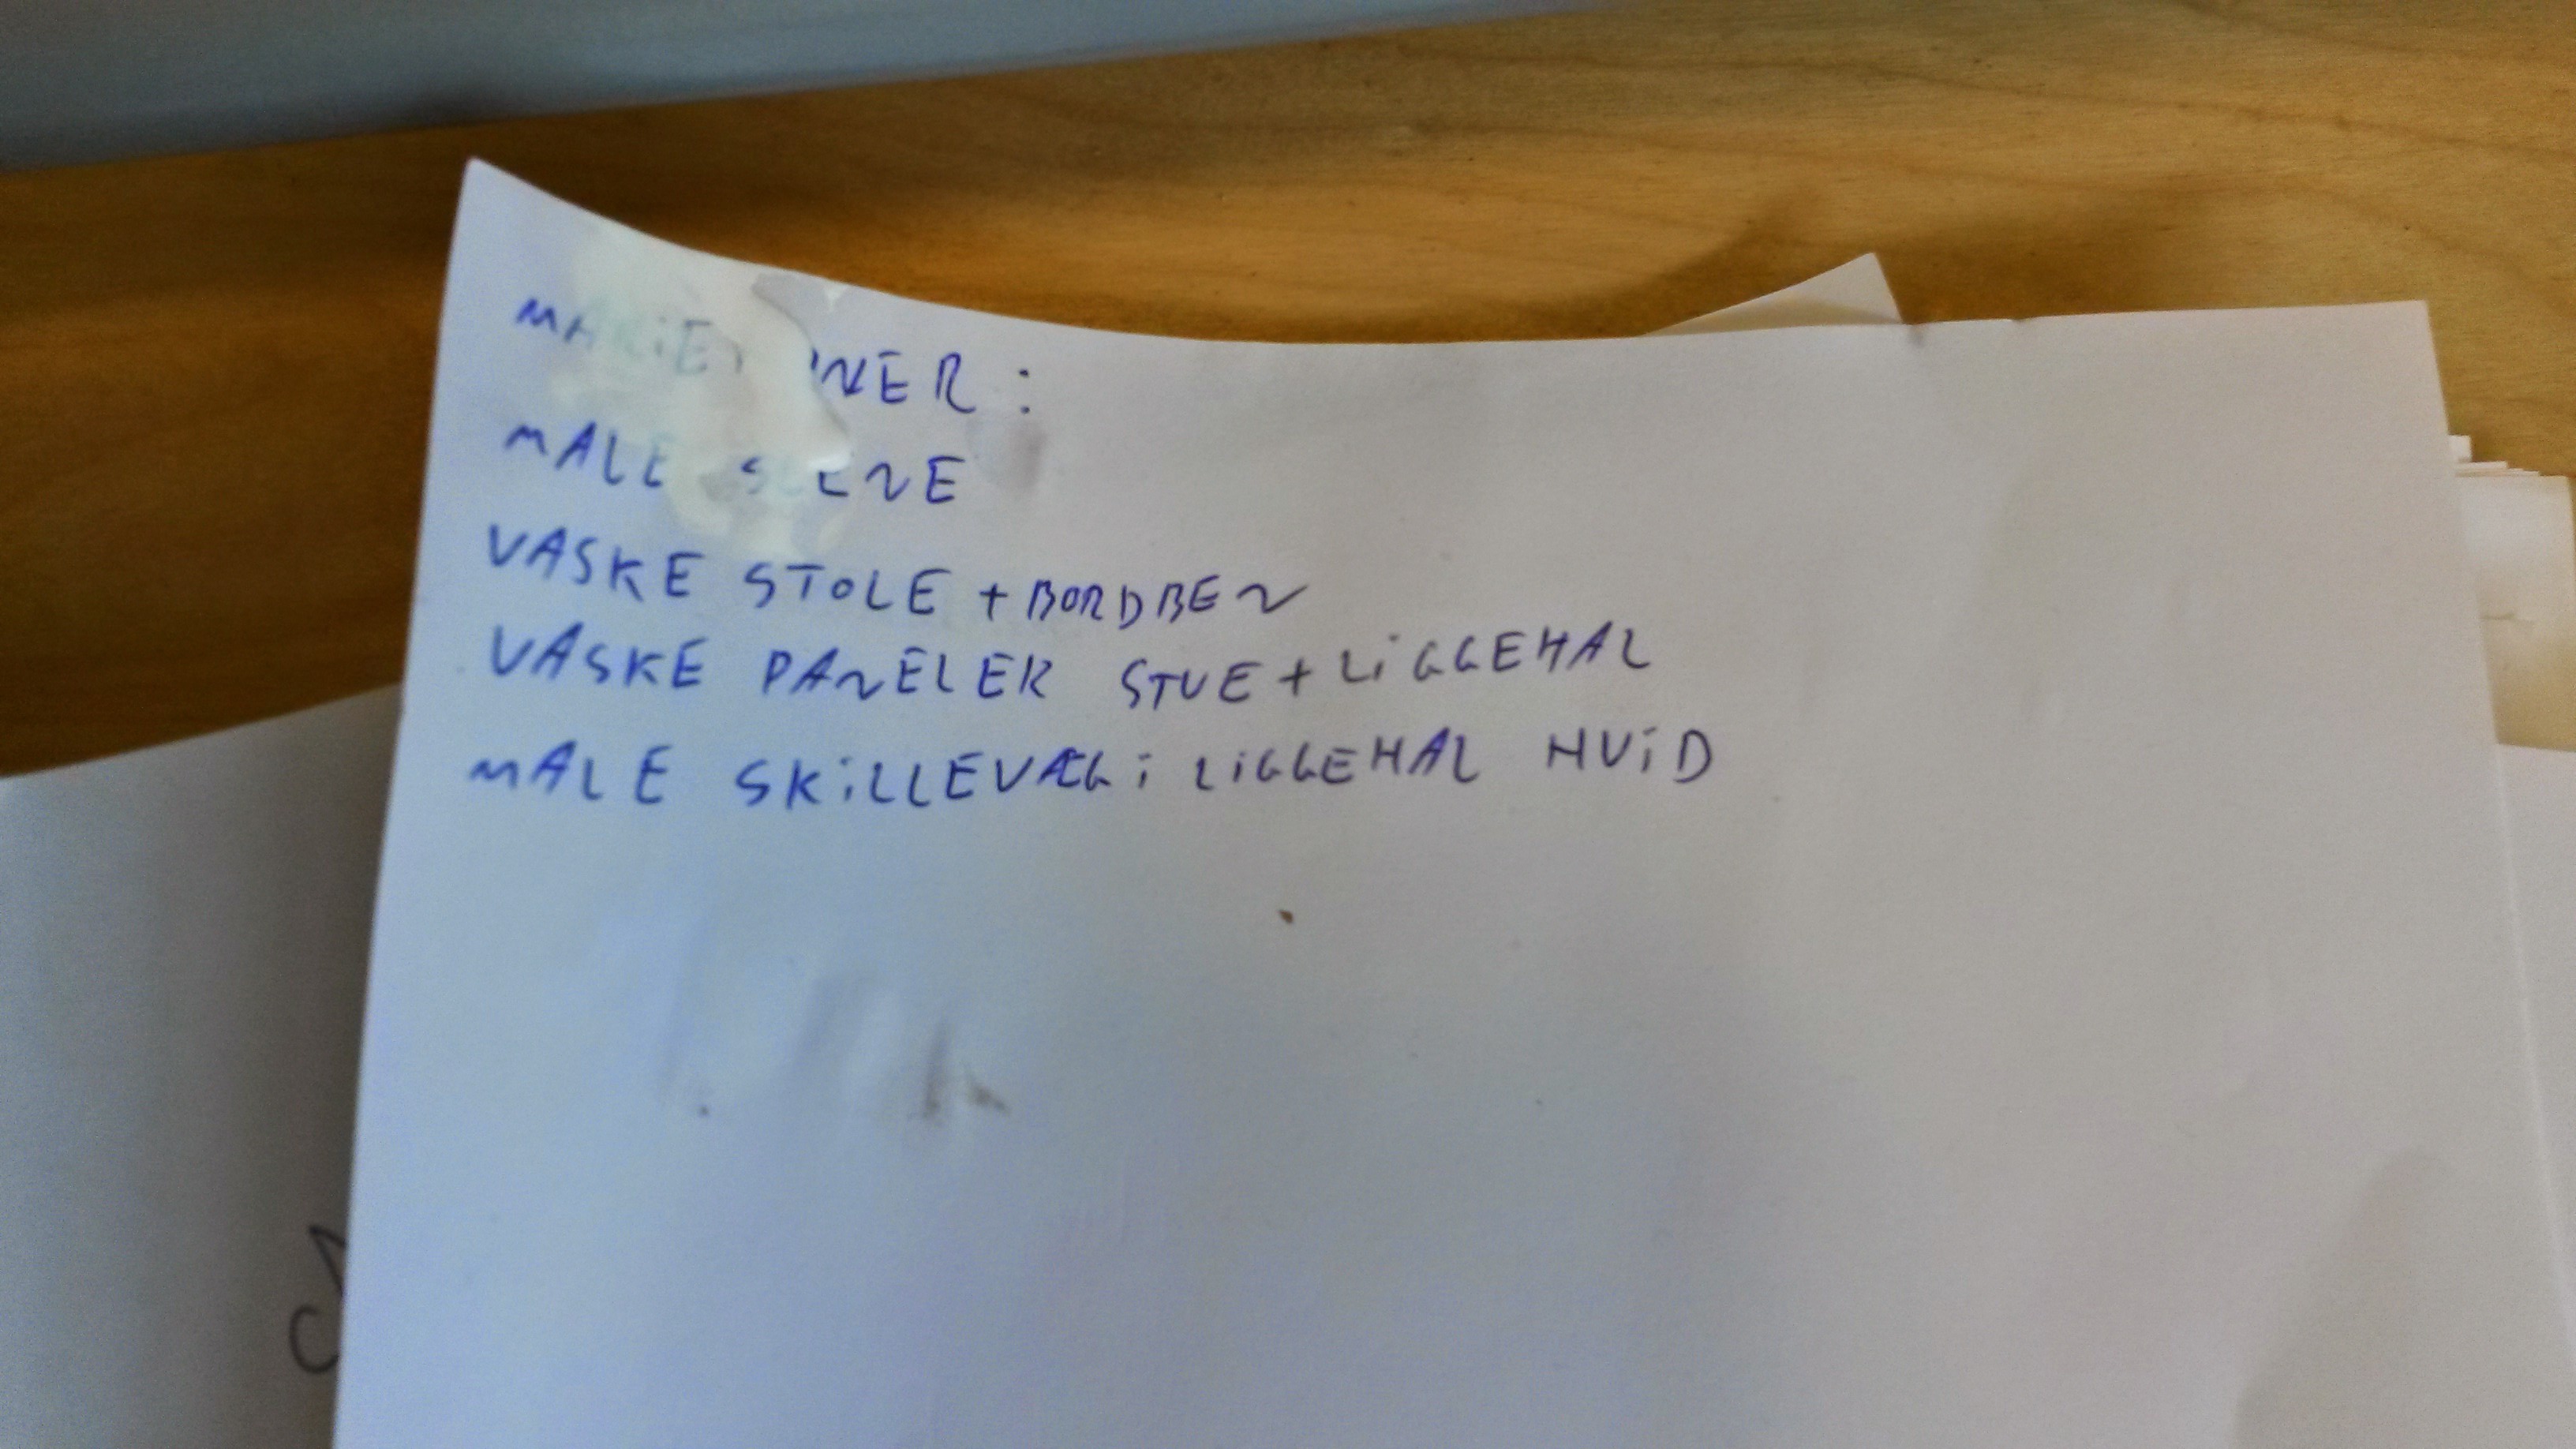 MALE SCENE
VASKE STOLE + BORDBEN
VASKE PANELER STUE + LIGGEHAL
MALE SKILLEVÆG i LIGGEHAL HVID